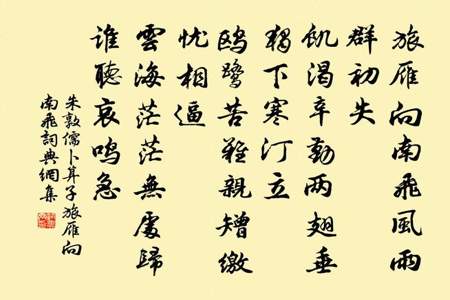 旅雁向南飛風雨
群初失
飢渴辛勤兩翅垂
獨下寒汀立
鷗鷺苦難親矰繳
忧相逼
雲海茫茫無處歸
誰聽哀鳴急
朱敦儒卜算子旅雁向
南飛詞典網集